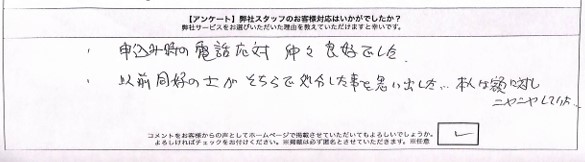 【アンケート】弊社スタッフのお客様対応はいかがでしたか?
弊社サービスをお選びいただいた理由を教えていただけますと幸いです。
・ 申込み時の電話応対 中々良好でした
・ 以前同好の士がそちらで処分した事を思い出した… 本人は額に対し
ニヤニヤしていた…
コメントをお客様からの声としてホームページで掲載させていただいてもよろしいでしょうか。
よろしければチェックをお付けください。※掲載は必ず匿名とさせていただきます。※任意